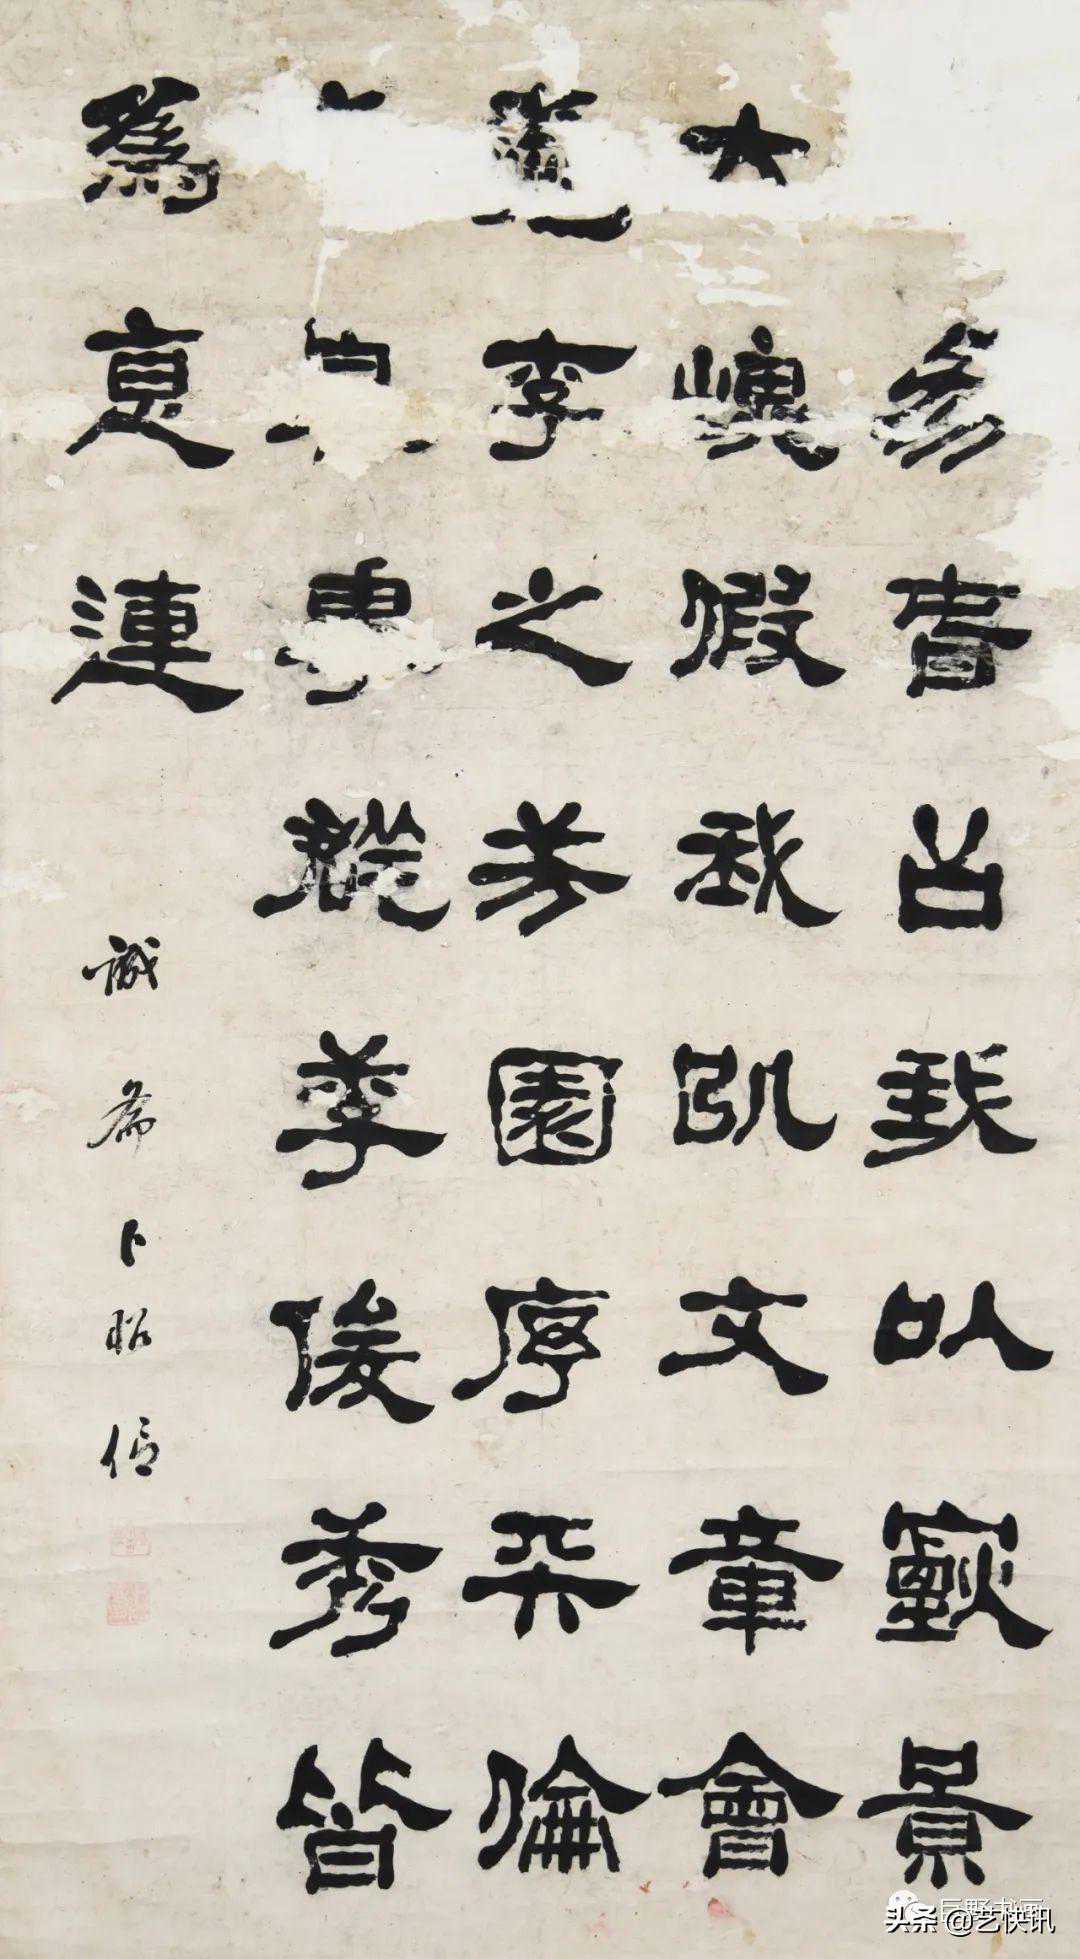 春召我以煙景
大塊假我以文章會
李之芳園序天倫
事羣季俊秀皆
為惠連
誠齋卜昭信
巨野书画
头条 @艺快讯